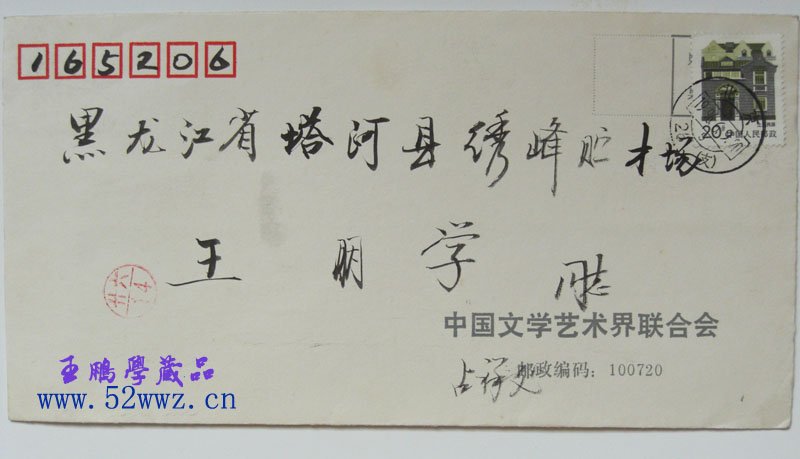 165206
20
中国人民邮政
黑龙江省塔河县绣峰贮木场
王朋学 同志
中国文学艺术界联合会
占祥文 邮政编码：100720
王鵬學藏品
www.52wwz.cn